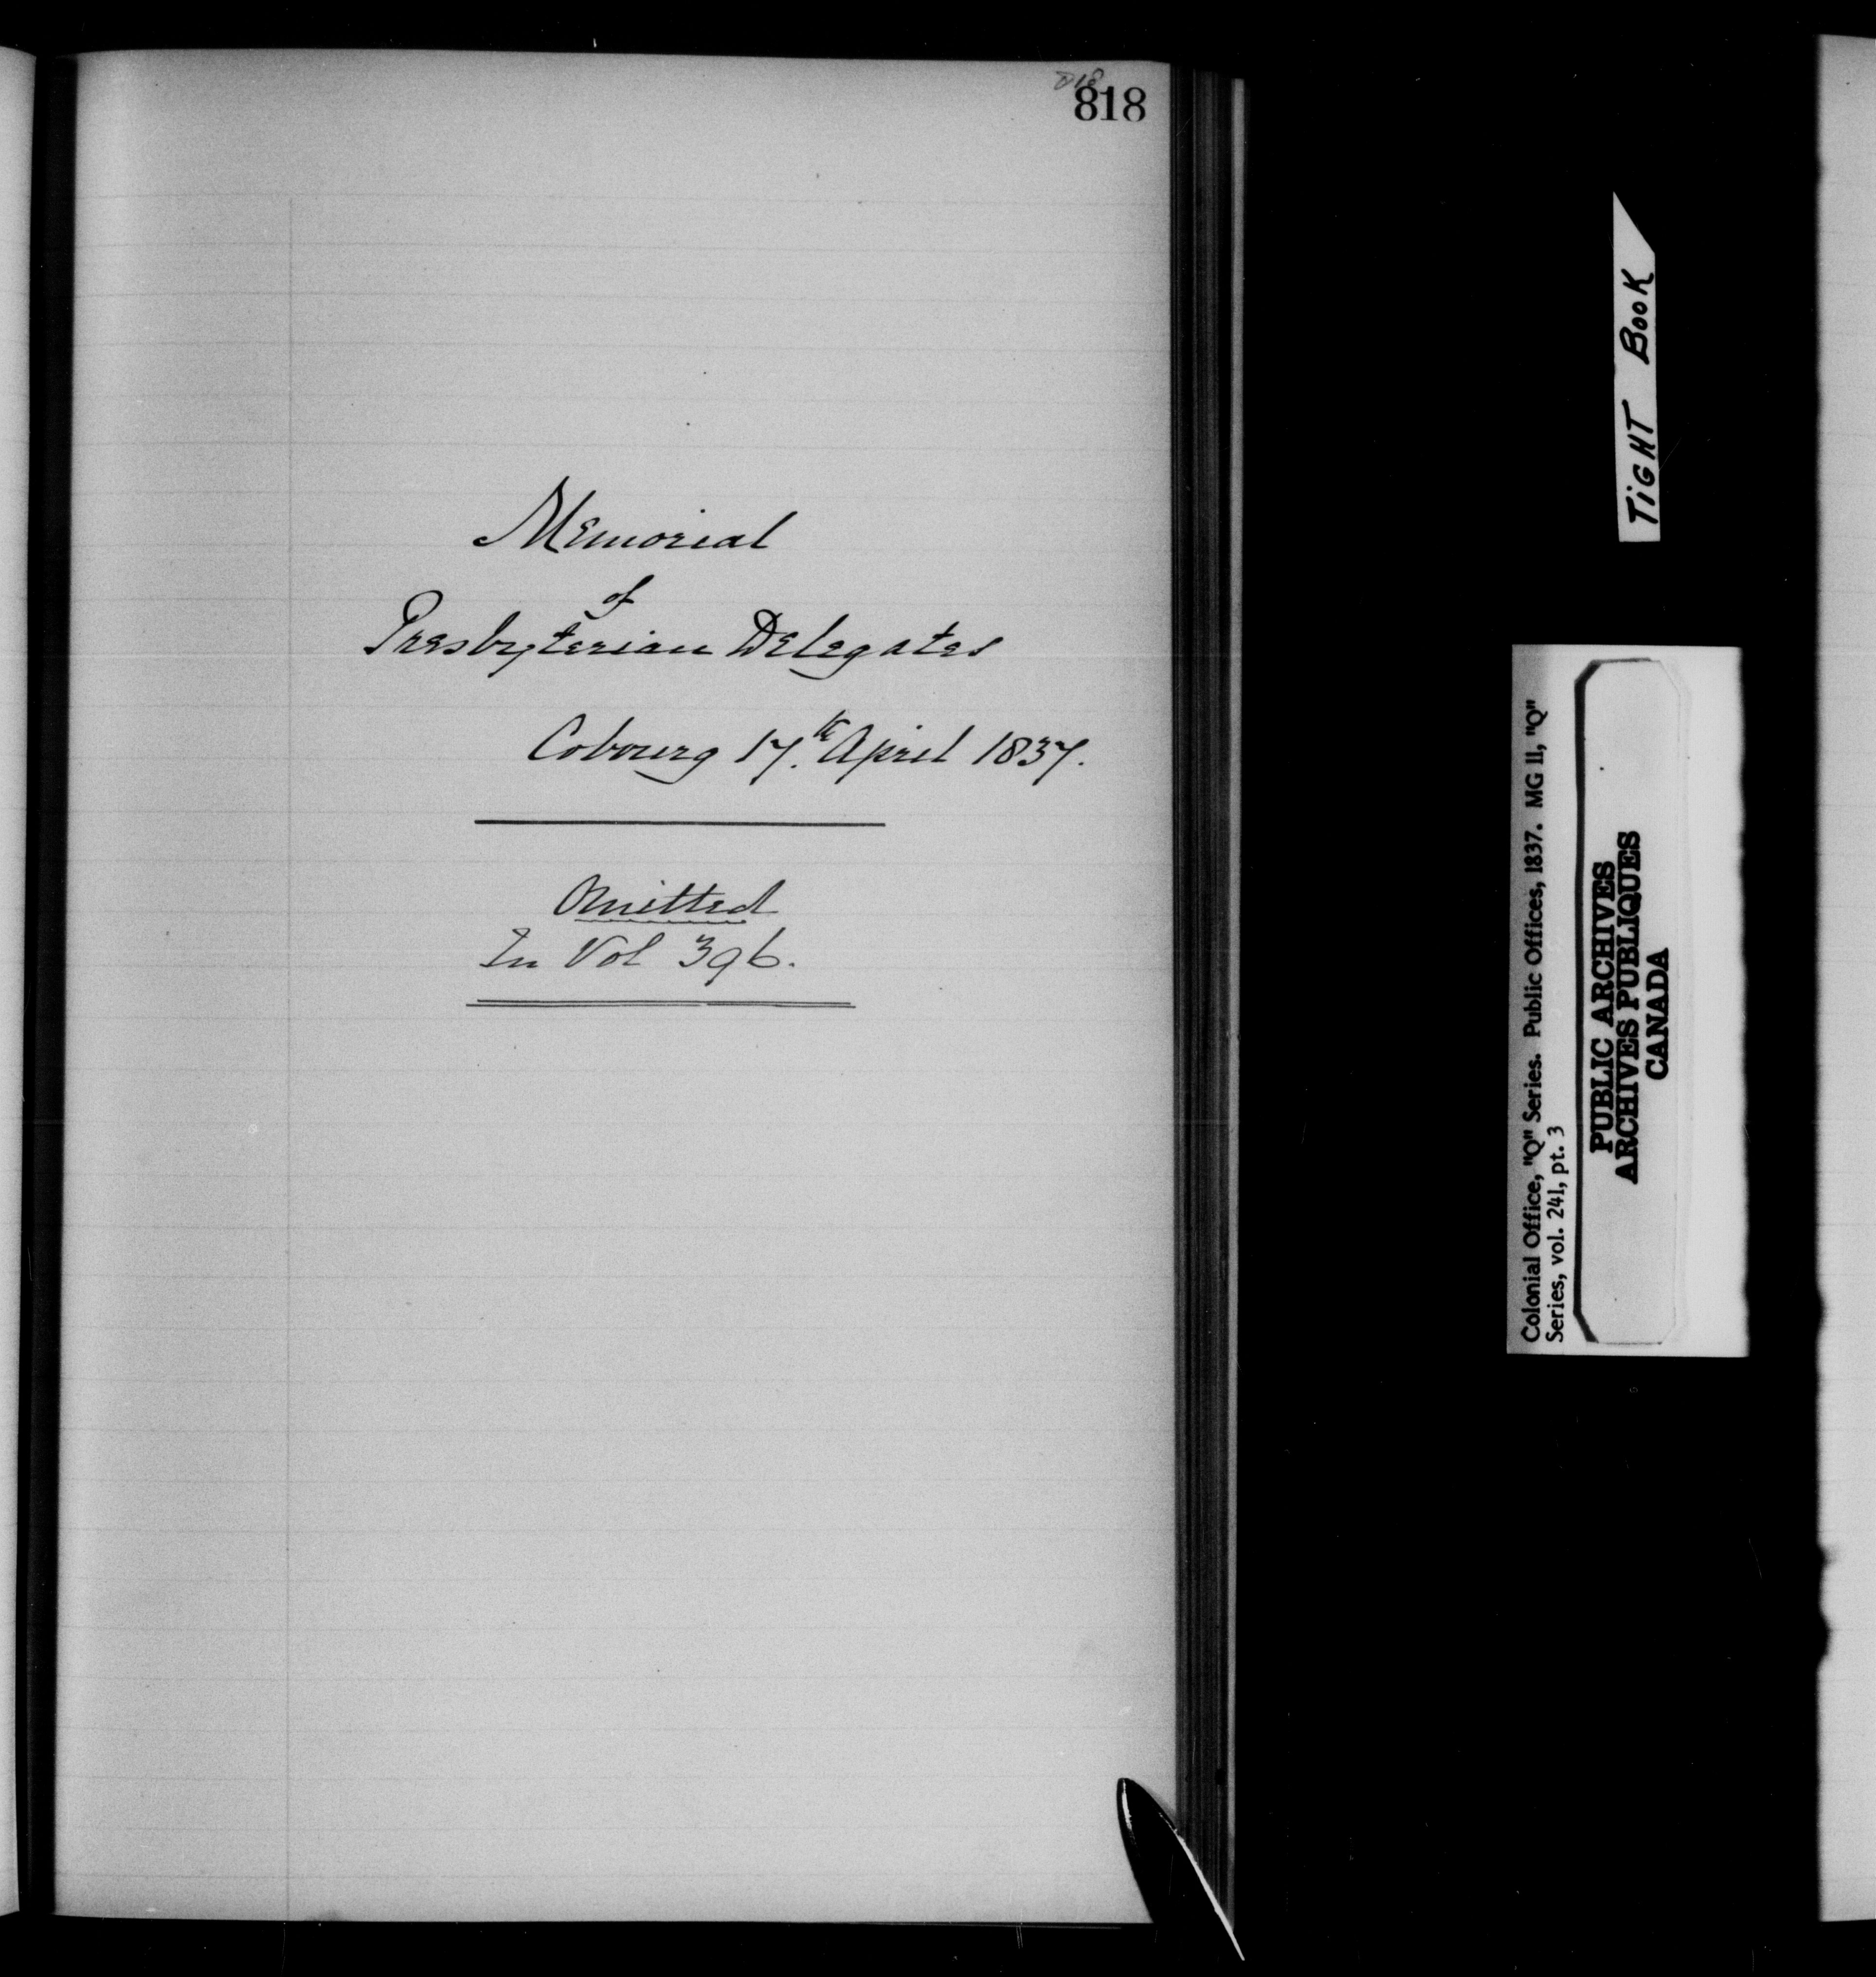 818
818
Memorial
of
Presbyterian Delegates
Cobourg 17th April 1837.
Omitted
In Vol 396.
TiGHT BooK
Colonial Office, "Q" Series. Public Offices, 1837. MG 11, "Q"
Series, vol. 241, pt. 3
PUBLIC ARCHIVES
ARCHIVES PUBLIQUES
CANADA